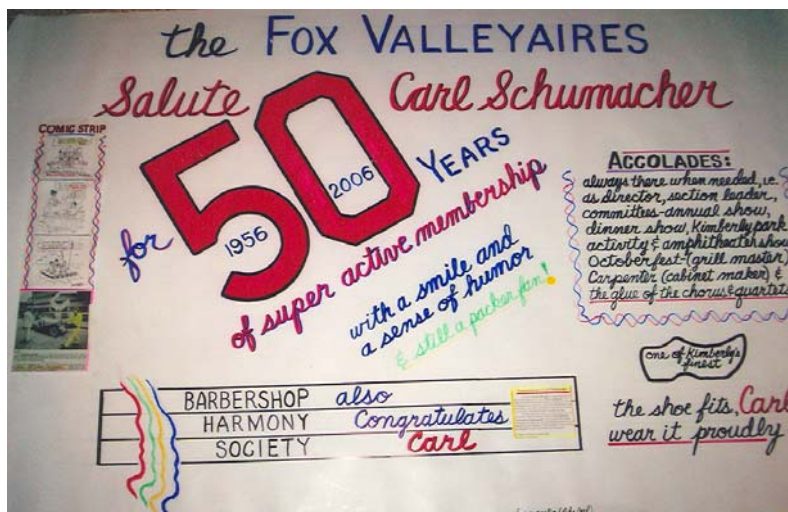 the FOX VALLEYAIRES
Salute Carl Schumacher
for 50 YEARS
1956
2006
of super active membership
with a smile and
a sense of humor
& still a packer fan!
COMIC STRIP
ACCOLADES:
always there when needed, i.e.
as director, section leader,
committees-annual show,
dinner show, Kimberly park
activity & amphitheater show
Octoberfest-(grill master)
Carpenter (cabinet maker) &
the glue of the chorus & quartets
one of Kimberly's
finest
the shoe fits, Carl
wear it proudly
BARBERSHOP also
HARMONY Congratulates
SOCIETY Carl